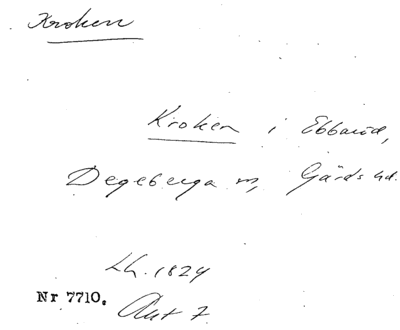 Kroken
Kroken i Ebbaröd,
Degeberga sn, Gärds hd.
Lh. 1824
Nr 7710.
Akt 7